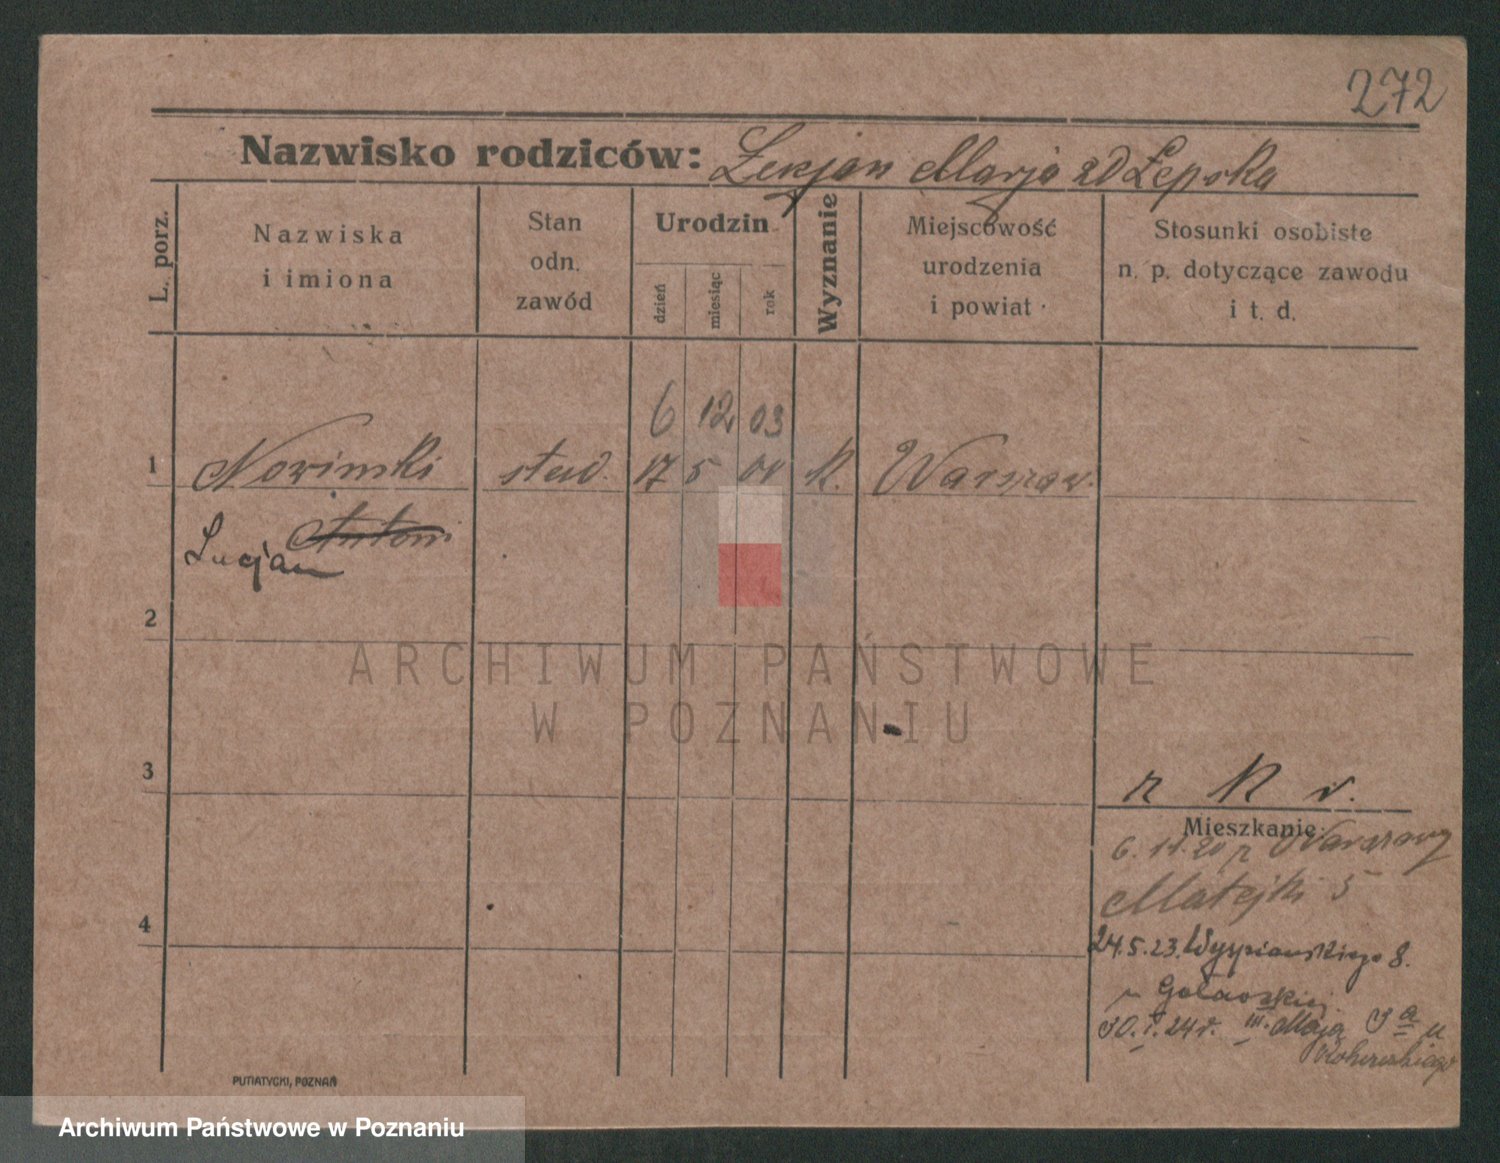 272
Nazwisko rodziców: Lucjan Marja zd Łepska
L. porz.
Nazwiska
i imiona
Stan
odn.
zawód
Urodzin
dzień
miesiąc
rok
Wyznanie
Miejscowość
urodzenia
i powiat
Stosunki osobiste
n. p. dotyczące zawodu
i t. d.
6 12 03
1 Nowinski stud. 17 5 01 K. Warszaw.
Antoni
Lucjan
2
ARCHIWUM PAŃSTWOWE
W POZNANIU
3
r K v.
Mieszkanie:
6. 11. 20 z Warszawy
Matejki 5
4
24.5.23. Wyspiańskiego 8.
30. I. 24 r. III. Maja 3 a u
PUTIATYCKI, POZNAŃ
Archiwum Państwowe w Poznaniu